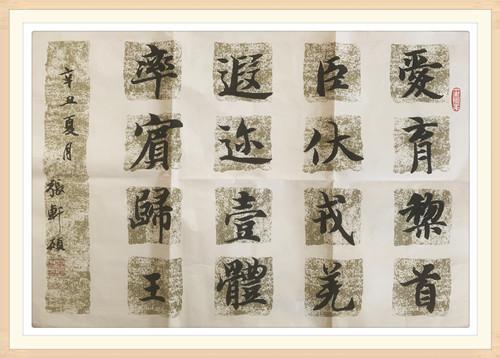 愛育黎首
臣伏戎羌
遐迩壹體
率賓歸王
辛丑夏月
張軒碩